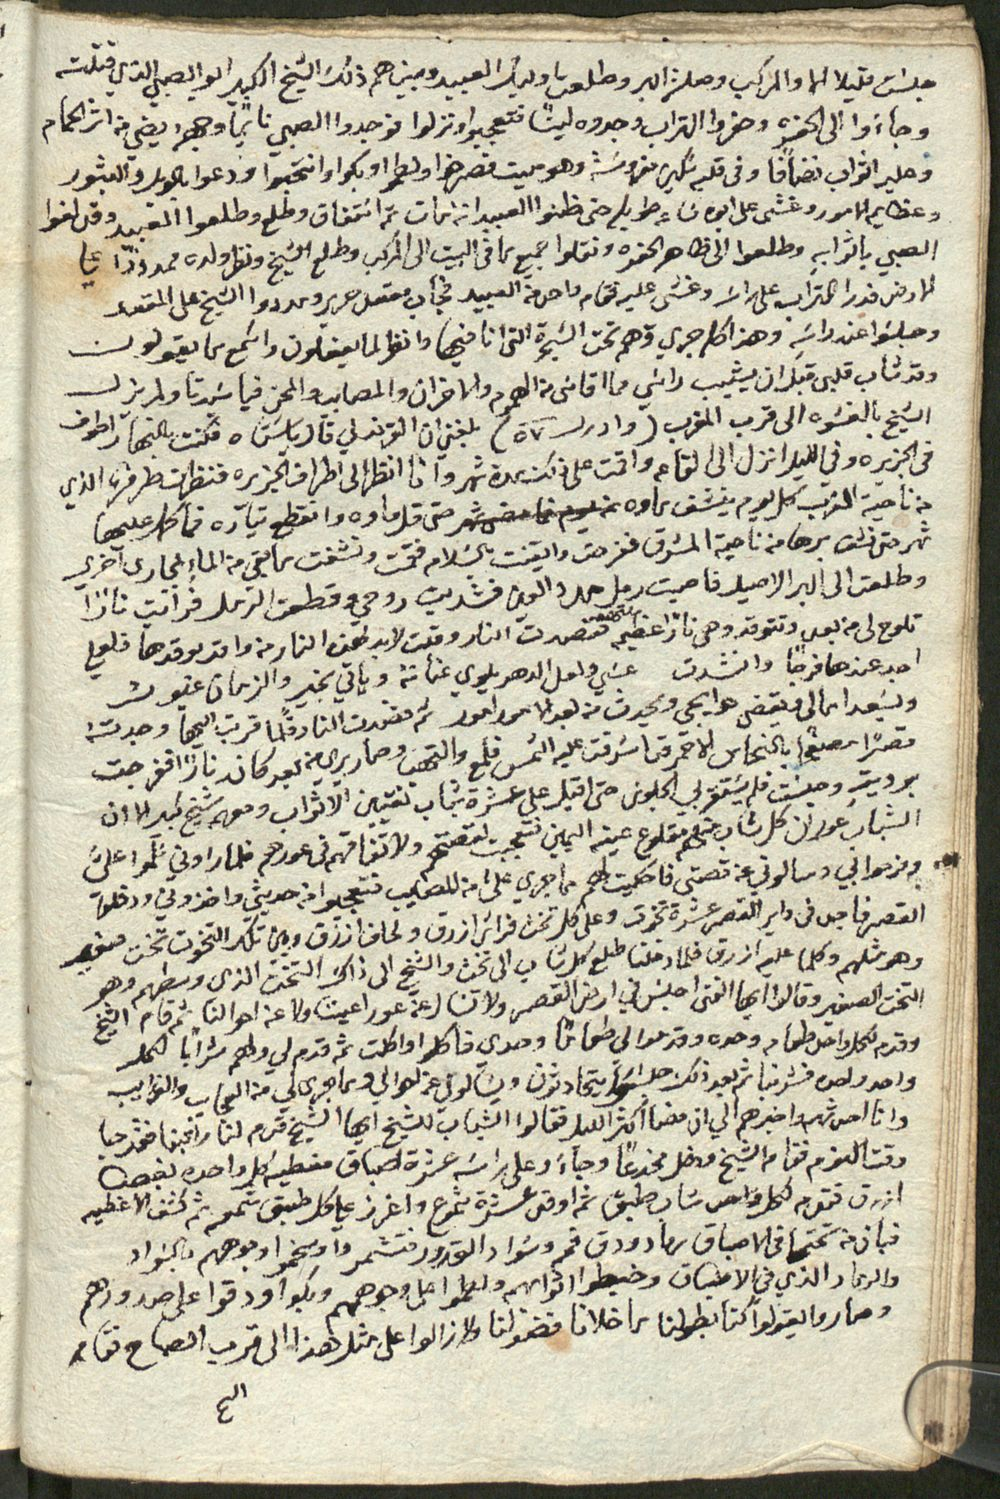 جلست قليلا الا والمركب وصلت البر وطلعوا اوليك العبيد وبينهم ذلك الشيخ الكبير ابو الصبي الذي قتلته
وجاءوا الى الحفره وحفروا التراب وجدوه لينًا فتعجبوا ونزلوا فوجدوا الصبي نايمًا ووجهه يضي من اثر الحمام
وعليه اثواب نضافًا وفي قلبه سكين مغروسة وهو ميت فصرخوا ولطموا وبكوا وانتحبوا ودعوا بالويل والثبور
وعظايم الامور وغشى على ابوه ساعه طويله حتى ظنوا العبيد انه مات ثم استفاق وطلع وطلعوا العبيد وقد لفوا
الصبي باثوابه وطلعوا الى ظاهر الحفره ونقلوا جميع ما في البيت الى المركب وطلع الشيخ ونظر ولده ممدودًا على
الارض فذرا التراب على راسه وغشى عليه فقام واحد من العبيد فجاب مقعد حرير ومددوا الشيخ على المقعد
وجلسوا عند راسه وهذا كله جري وهم تحت الشجرة التي انا فيها وانظر لما يفعلون واسمع ما يقولون
وقد شاب قلبي قبل ان يشيب راسي مما اقاسي من الهموم والاحزان والمصايب والمحن فيا ستنا ولم يزل
الشيخ بالغشوه الى قرب المغرب (وادرك ٥٧) بلغني ان القرندلي قال ياستاه فكنت بالنهار اطوف
في الجزيره وفي الليل انزل الى القاعه واقمت على ذلك مدة شهر وانا انظر الى اطراف الجزيره فنظرت طرفها الذي
من ناحية المغرب كل يوم ينشف ماوه حتى قل ماوه وانقطع تياره فما كمل عليها
شهر حتى نشف برها من ناحية المشرق ففرحت وايقنت بالسلامه فقمت ونشفت ما بقي من الماء المجاري اخري
وطلعت الى البر الاصيل فاصبت رمل مد العين فشديت روحي وقطعت الرمل فرأيت نارًا
تلوح لي من بعيد وتتوقد وهي نارًا عظيمه تلتهب فقصدت النار وقلت لا بد لهذه النار من واقد يوقدها فلعلي
اجد عندها فرجًا وانشدت عسى ولعل الدهر يلوي عنانه وياتي بخير والزمان غيور
ويسعد امالي ويقضي حوايجي وتحدث من بعد الامور امور ثم قصدت النار فلما قربت اليها وجدته
قصرًا مصفحًا بالنحاس الاحمر فما شرقت عليه الشمس فلمع والتهب وصار يري من بعيد كانه نارًا ففرحت
برؤيته وجلست فلم يستقر بي الجلوس حتى اقبل علي عشرة شباب نقيين الاثواب ومعهم شيخ كبير الا ان
الشباب عوران كل شاب منهم مقلوع عينه اليمين فتعجبت لقصتهم ولاتفاقهم في عورهم فلما راوني سلموا علي
وفرحوا بي وسالوني عن قصتي فاحكيت لهم ما جري علي من المصايب فتعجبوا من حديثي واخذوني ودخلوا
القصر فاجد في داير القصر عشرة تخوت وعلى كل تخت فراش ازرق ولحاف ازرق وبين تلك التخوت تخت صغير
وهو مثلهم وكلما عليه ازرق فلما دخلنا طلع كل شاب الى تخت والشيخ الى ذاك التخت الذي وسطهم وهو
التخت الصغير وقالوا ايها الفتي اجلس في ارض القصر ولا تسال عن عور اعيننا ولا عن احوالنا ثم قام الشيخ
وقدم لكل واحد طعامه وحده وقدموا لي طعامًا وحدي فاكلوا واكلت ثم قدم لي ولهم شرابًا لكل
واحد واحده فشربنا ثم بعد ذلك جلسوا يتحادثون ويسالوني عن احوالي وما جري لي من العجايب والغرايب
وانا احدثهم واخبرهم الى ان مضا اكثر الليل فقالوا الشباب للشيخ ايها الشيخ قدم لنا راتبنا فقد جا
وقت النوم فقام الشيخ ودخل مخدعًا وجاء وعلى راسه عشرة اطباق مغطيه كل واحده بغطا
ازرق فقدم لكل شاب طبق ثم اوقد عشرة شموع واغرز على كل طبق شمعه ثم كشف الاغطيه
فبان من تحتها في الاطباق رماد ودق فحم وسواد القدور فتشمروا وسخموا وجوههم بالسواد
والرماد الذي في الاطباق وخبطوا اثوابهم ولطموا على وجوههم وبكوا ودقوا على صدورهم
وصاروا يقولوا كنا بطولنا ما خلانا فضولنا ولا زالوا على مثل هذا الى قرب الصباح فقام
الشيخ